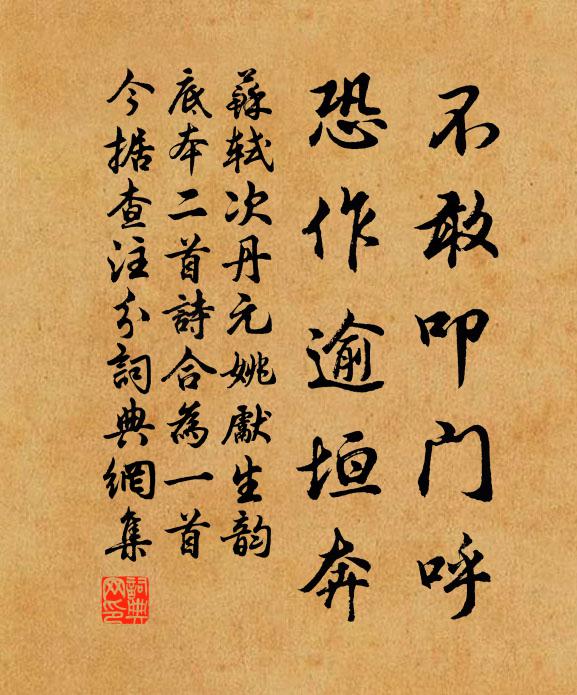 不敢叩门呼
恐作逾垣奔
蘇軾次丹元姚獻生韵
底本二首詩合為一首
今据查注分詞典網集
詞典網印